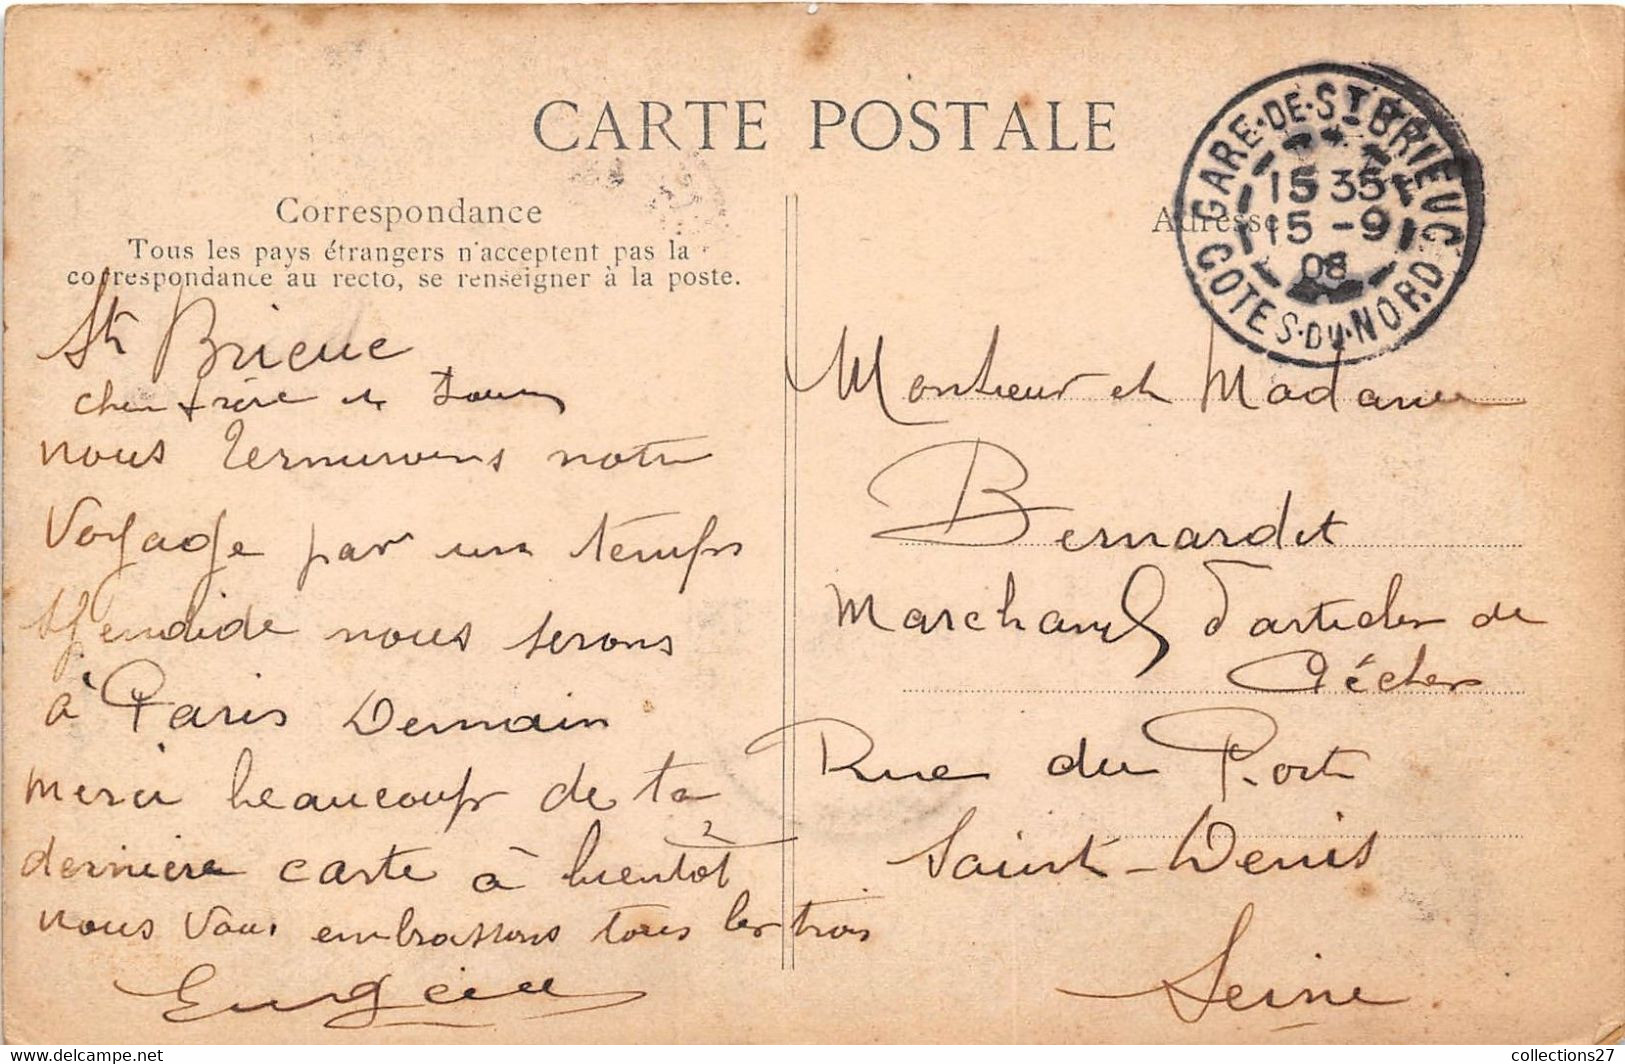 CARTE POSTALE
Correspondance
Tous les pays étrangers n'acceptent pas la
correspondance au recto, se renseigner à la poste.
St Brieuc
cher frère et
nous terminons notre
voyage par un temps
splendide nous serons
à Paris Demain
merci beaucoup de ta
dernière carte à bientôt
nous vous embrassons tous les trois
GARE-DE-ST BRIEUC
15 35
15 -9
08
COTES-DU-NORD
Adresse
Monsieur et Madame
Bernardet
Marchand d'articles de
Pêches
Rue du Port
Saint-Denis
Seine
collections27